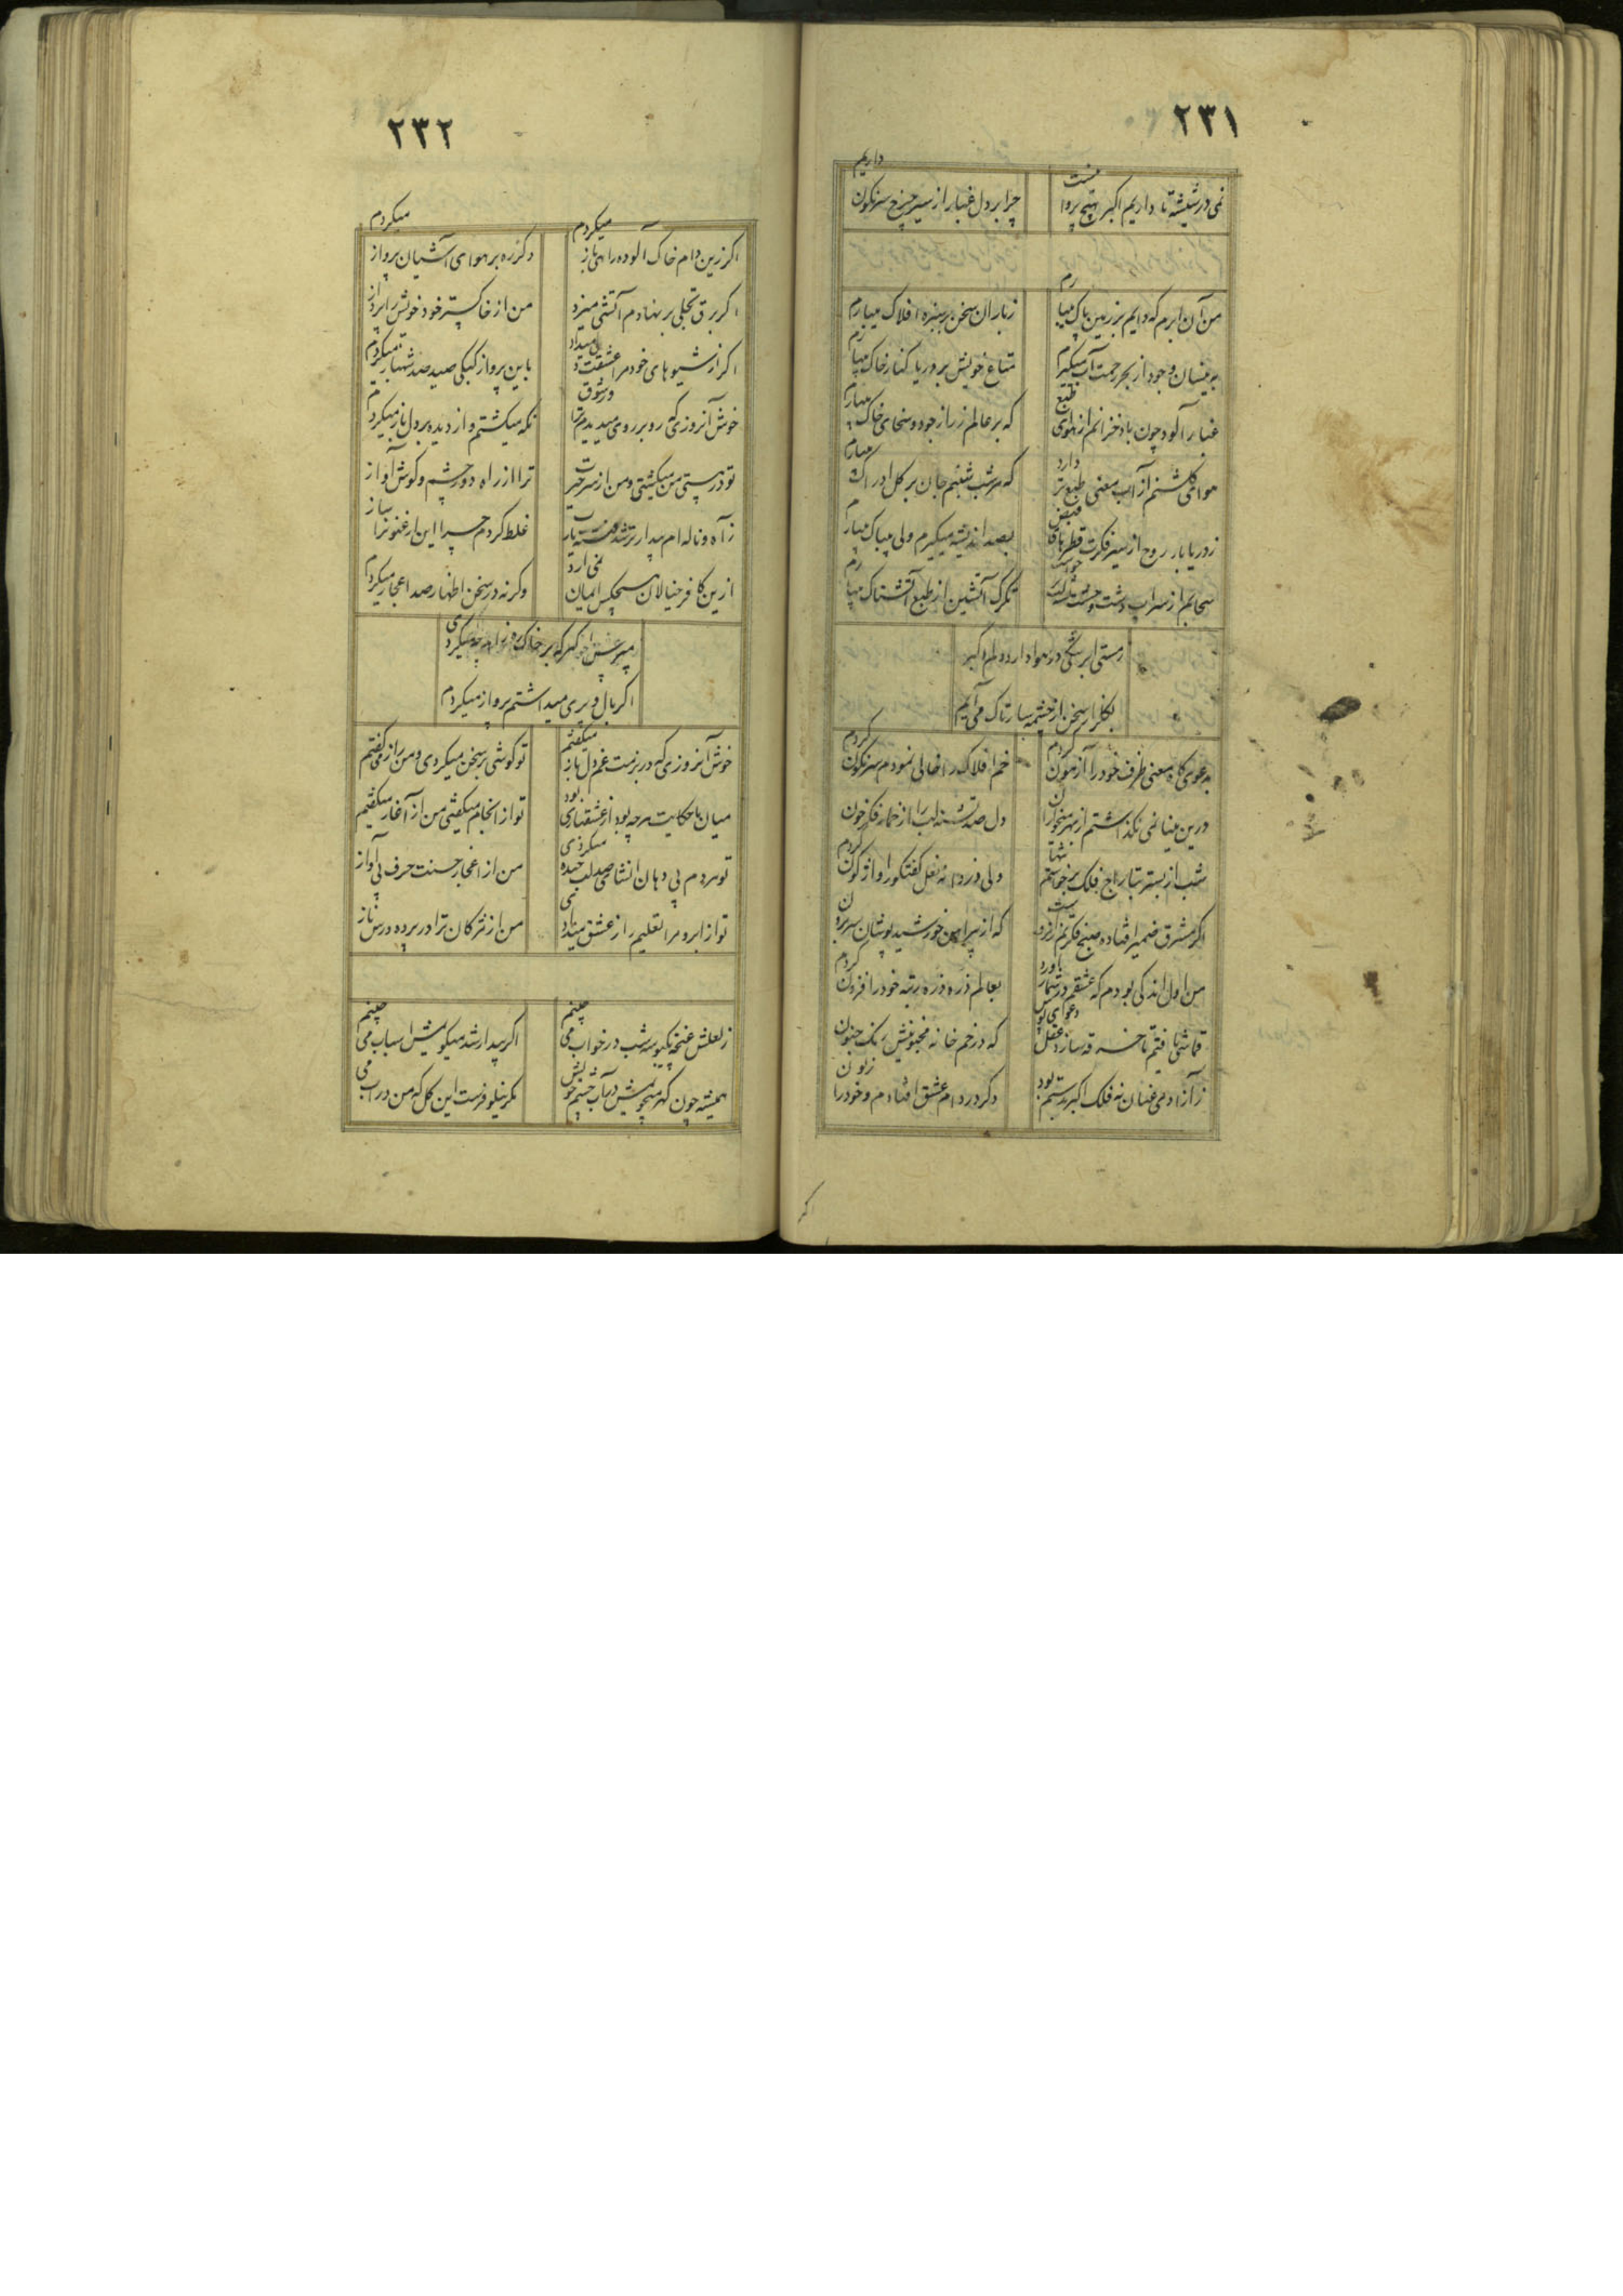 ٢٣١
نمی در شیشه تا داریم اکبر هیچ پروا نیست
چرا بر دل غبار از سیر چرخ سرنگون داریم
من آن ابرم که دایم بر زمین پاک میبارم
ز باران سخن بر سبزه افلاک میبارم
به نیسان وجود از بحر رحمت آب میگیرم
متاع خویش بر دریا کنار خاک میبارم
غبار آلود چون باد خزانم از هوای طبع
که بر عالم زر از جود و سخای خاک میبارم
هوای گلشنم از آب معنی طبع تر دارد
که هر شب شبنم جان بر گل ادراک میبارم
ز دریابار روح از سیر فکرت قطرها
بصد اندیشه میگیرم ولی بیباک میبارم
سحابم از سراب دشت وحشت
تگرگ آتشین از طبع آتشناک میبارم
ز مستی ابر سنگی در هوا دارد دلم اکبر
بگلزار سخن از چشمه سار تاک می آیم
به دعوی گاه معنی ظرف خود را آزمون کردم
خم افلاک را خالی نمودم سرنگون کردم
درین مینا نمی نگذاشتم از بهر مخموران
دل صد تشنه لب را از خمار فکر خون کردم
شب از بستر بتاراج فلک برخواستم تنها
ولی دزدانه نعل گفتگو را واژگون کردم
اگر مشرق ضمیر افتاده صبح فکرتم
که از پیراهن خورشید پوشان سر برون کردم
من اول اندکی بودم که عشقم در شمار آورد
بعالم ذره ذره رتبه خود را فزون کردم
قماشی یافتم تا خرقه سازد عقل
که در خم خانه مجنونیش رنگ جنون کردم
ز آزادی عنان نه فلک اکبر بدستم بود
دگر در دام عشق افتادم و خود را زبون
٢٣٢
اگر زین دام خاک آلوده راهی باز میکردم
دگر ره بر هوای آشیان پرواز میکردم
اگر برق تجلی بر نهادم آتشی میزد
من از خاکستر خود خویش را پرداز
اگر از شیوهای خود مرا عشقت میداد
باین پرواز کبکی صید صد شهباز میکردم
خوش آنروزی که رو بر روی میدیدم ترا در شوق
نگه میکشتم و از دیده بر دل ناز میکردم
تو در هستی من میکشتی و من از سر حیرت
ترا از راه دو چشم و گوش آواز
ز آه و ناله ام بیدار تر شد فتنه
غلط کردم چرا این ارغنون را ساز
ازین کافر خیالان هیچکس ایمان نمی آرد
وگرنه در سخن اظهار صد اعجاز میکردم
اگر بال و پری میداشتم پرواز میکردم
خوش آنروزی که در بزمت غم دل باز میگفتم
تو گوشی بر سخن میکردی و من راز میگفتم
میان ما حکایت هر چه بود از عشقبازی بود
تو از انجام میگفتی من از آغاز میگفتم
تو هر دم بی دهان انشای صد لب خنده میکردی
من از اعجاز حسنت حرف بی آواز
تو از ابرو مرا تعلیم راز عشق میدادی
من از مژگان ترا در پرده درس ناز
ز لعلش غنچه یکبوسه شب در خواب می چینم
اگر بیدار شد میگویمش اسباب می چینم
همیشه چون گهر میجویمش در آب چشم خویش
مگر نیلوفرست این گل که من در آب می